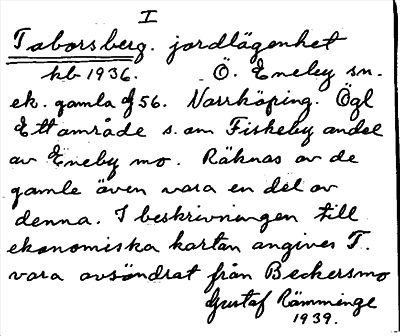 I
Taborsberg. jordlägenhet
kb 1936. Ö. Eneby sn.
ek. gamla 56. Norrköping. Ögl
Ett område s. om Fiskeby andel
av Eneby mo. Räknas av de
gamle även vara en del av
denna. I beskrivningen till
ekonomiska kartan angives T.
vara avsöndrat från Beckersmo
Gustaf Rämminge
1939.